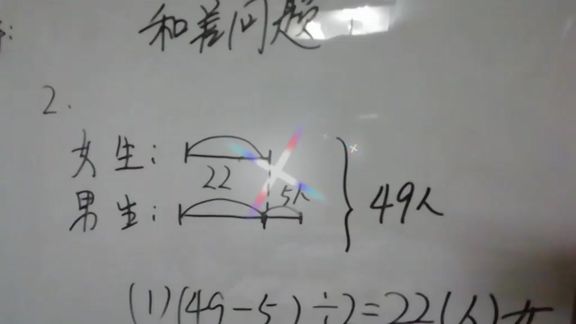 和差问题
2.
女生：
22
5人
男生：
49人
(1)(49-5)÷2=22(人)